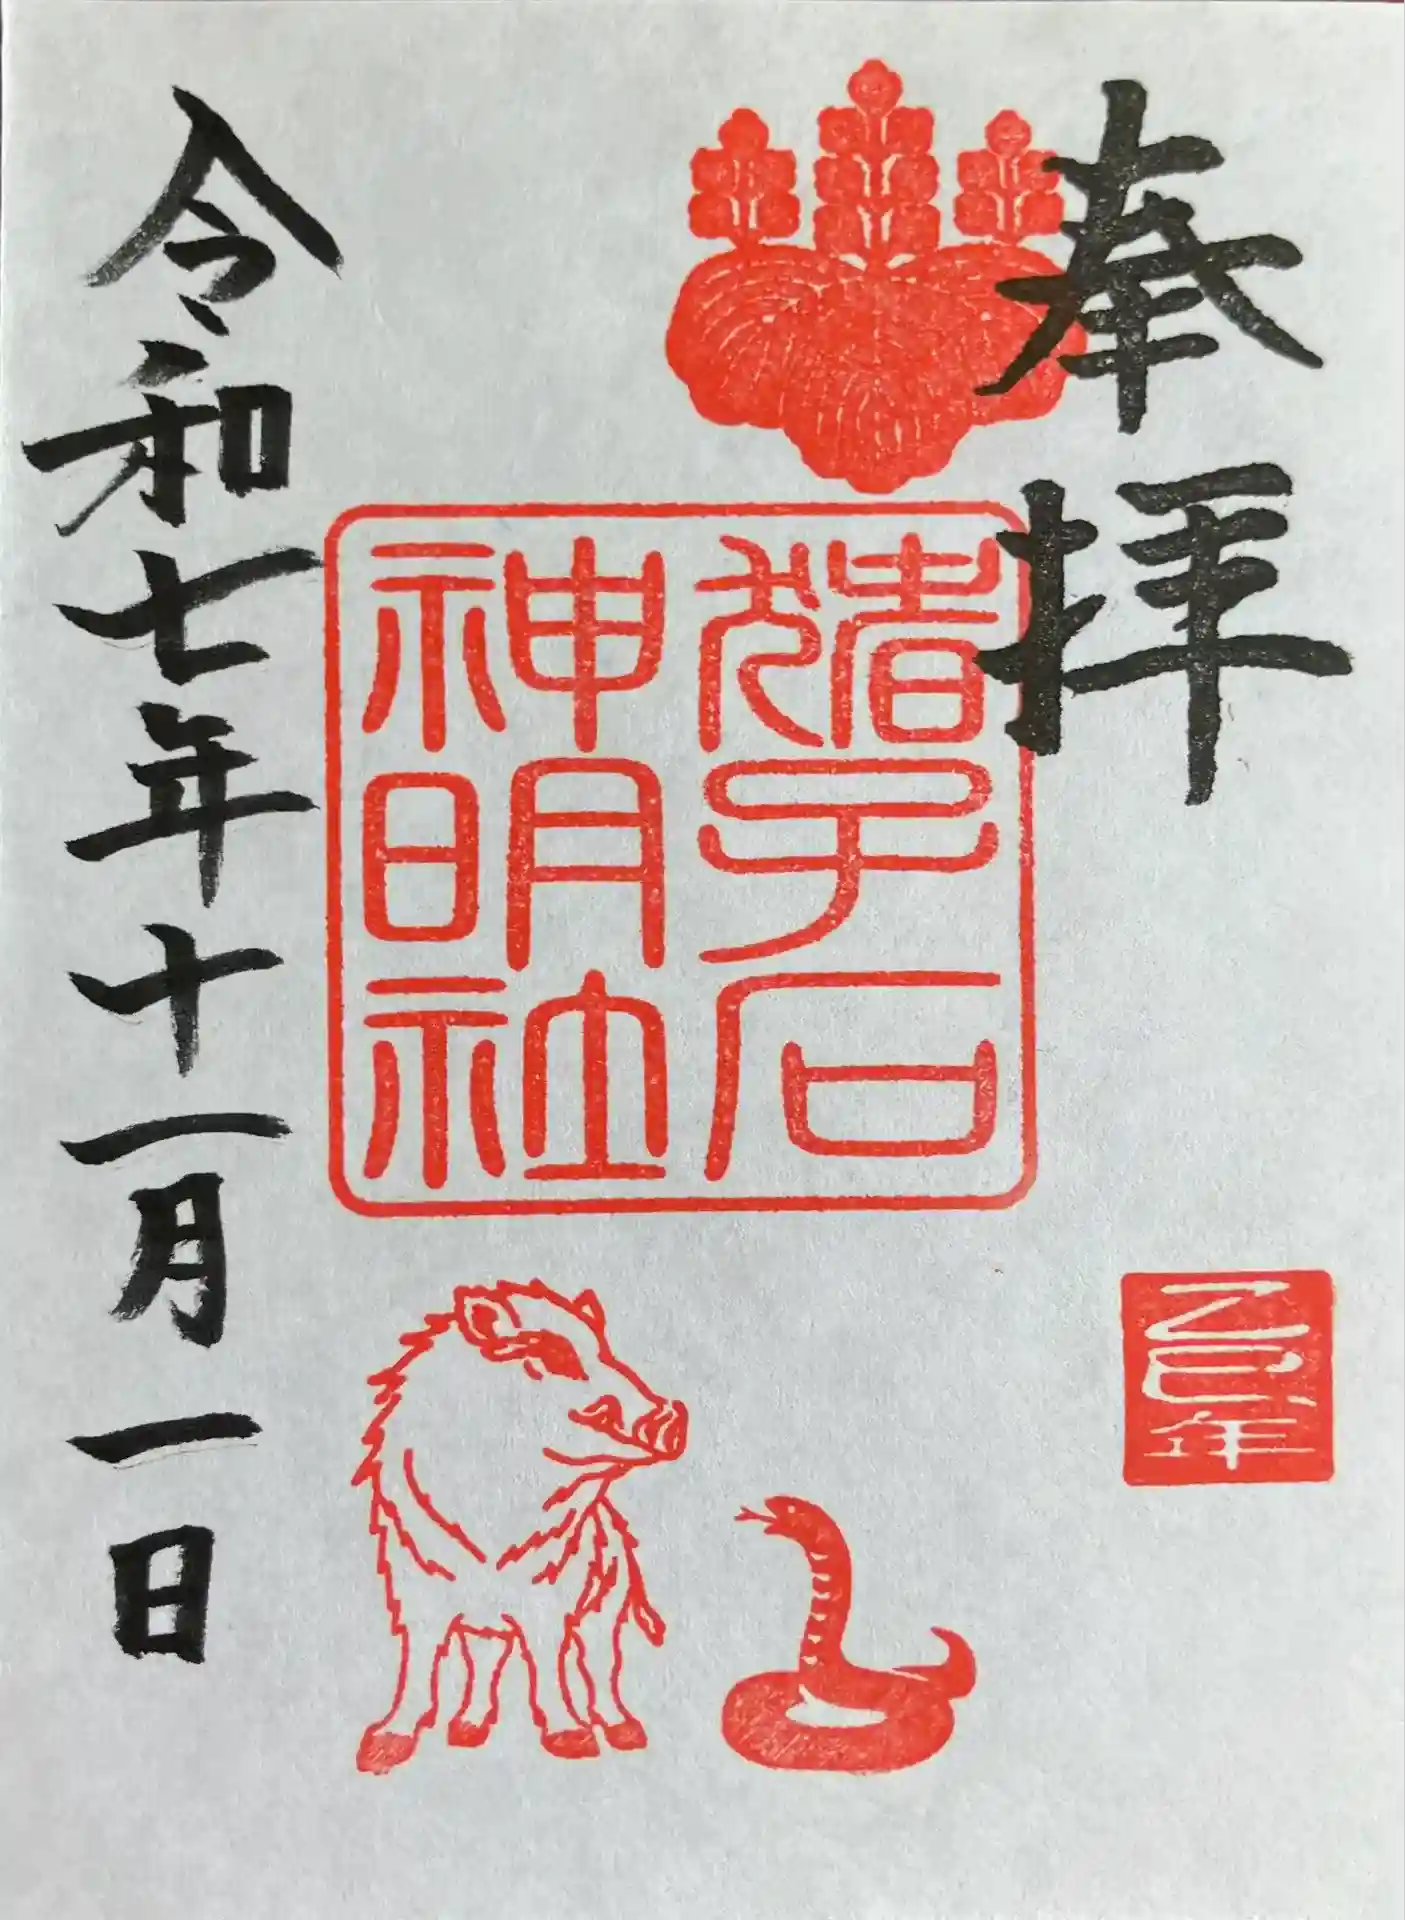 奉拝
猪子石
神明社
乙巳年
令和七年十一月一日